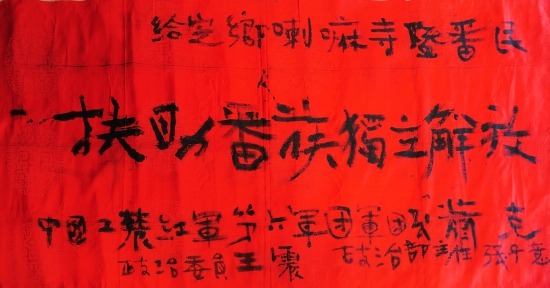 给定鄉喇嘛寺暨番民
扶助番族獨立解放
中國工農红軍第六軍团軍团長蕭克
政治委員王震 政治部主任 張子意